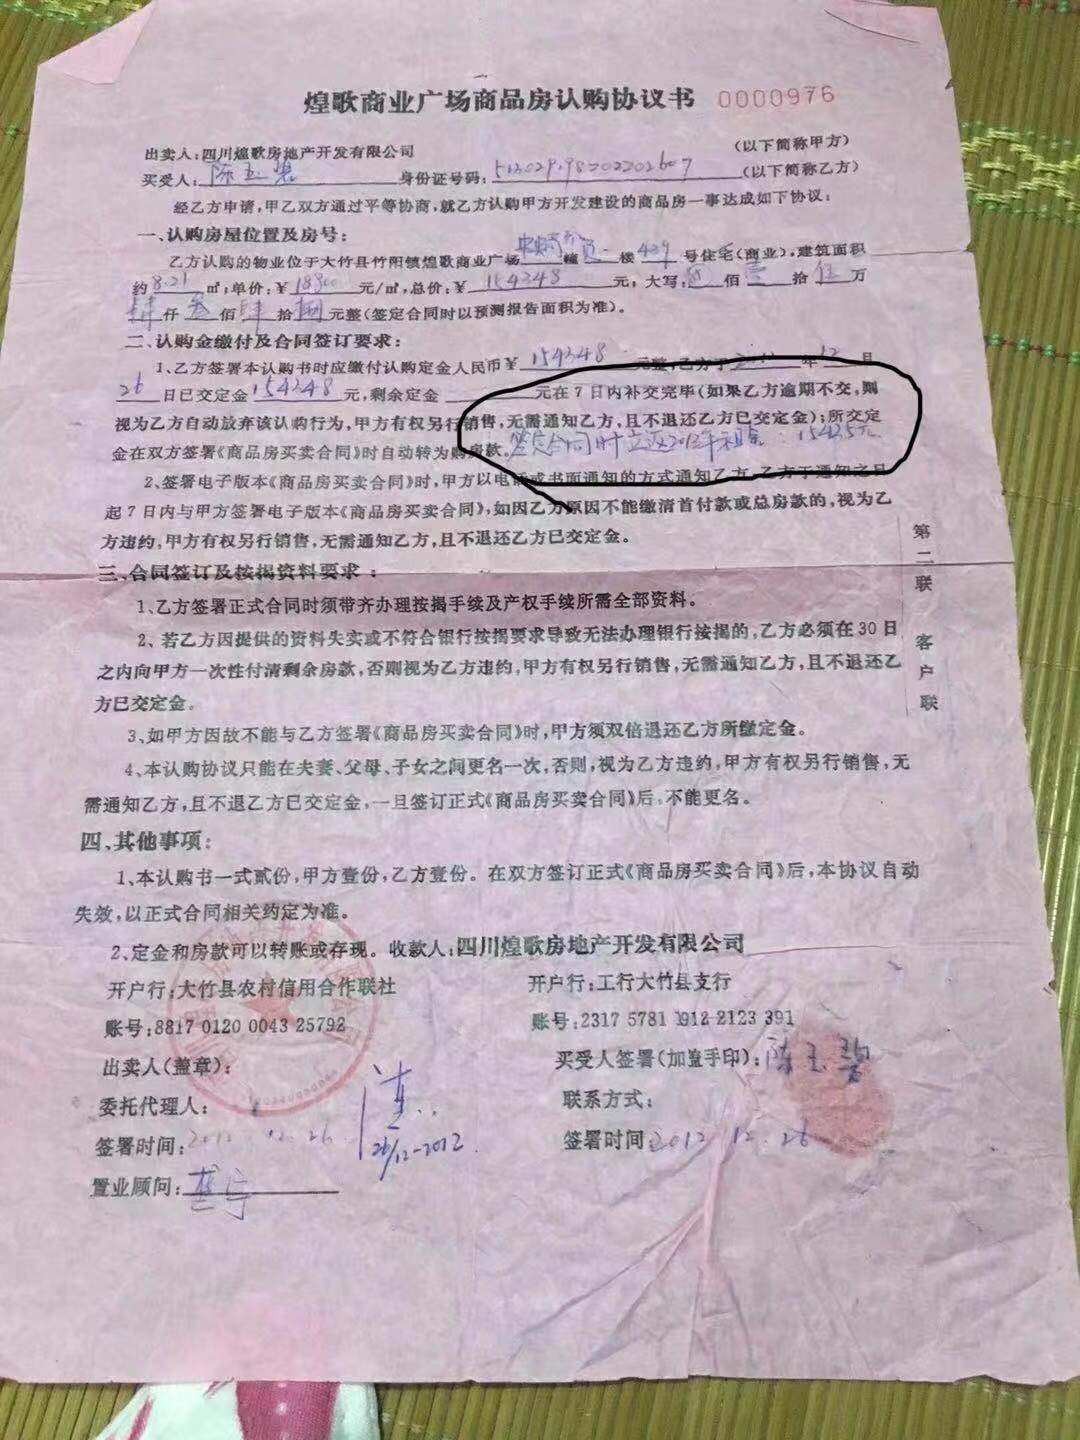 煌歌商业广场商品房认购协议书 0000976
出卖人:四川煌歌房地产开发有限公司 (以下简称甲方)
买受人: 陈玉碧 身份证号码: (以下简称乙方)
经乙方申请,甲乙双方通过平等协商,就乙方认购甲方开发建设的商品房一事达成如下协议:
一、认购房屋位置及房号:
乙方认购的物业位于大竹县竹阳镇煌歌商业广场 幢 一 楼 439 号住宅(商业),建筑面积
约 8.21 ㎡;单价:¥ 18800 元/㎡,总价:¥ 154348 元,大写: 佰 壹 拾 伍 万
肆 仟 叁 佰 肆 拾 捌 元整(签定合同时以预测报告面积为准)。
二、认购金缴付及合同签订要求:
1、乙方签署本认购书时应缴付认购定金人民币¥ 154348 元整,乙方于 2012 年 12 月
26 日已交定金 154348 元,剩余定金 元在7日内补交完毕(如果乙方逾期不交,则
视为乙方自动放弃该认购行为,甲方有权另行销售,无需通知乙方,且不退还乙方已交定金);所交定
金在双方签署《商品房买卖合同》时自动转为购房款。 签定合同时立返2013年租金:15435元
2、签署电子版本《商品房买卖合同》时,甲方以电话或书面通知的方式通知乙方,乙方于通知之日
起7日内与甲方签署电子版本《商品房买卖合同》,如因乙方原因不能缴清首付款或总房款的,视为乙
方违约,甲方有权另行销售,无需通知乙方,且不退还乙方已交定金。
三、合同签订及按揭资料要求:
1、乙方签署正式合同时须带齐办理按揭手续及产权手续所需全部资料。
2、若乙方因提供的资料失实或不符合银行按揭要求导致无法办理银行按揭的,乙方必须在30日
之内向甲方一次性付清剩余房款,否则视为乙方违约,甲方有权另行销售,无需通知乙方,且不退还乙
方已交定金。
3、如甲方因故不能与乙方签署《商品房买卖合同》时,甲方须双倍退还乙方所缴定金。
4、本认购协议只能在夫妻、父母、子女之间更名一次,否则,视为乙方违约,甲方有权另行销售,无
需通知乙方,且不退乙方已交定金,一旦签订正式《商品房买卖合同》后,不能更名。
四、其他事项:
1、本认购书一式贰份,甲方壹份,乙方壹份。在双方签订正式《商品房买卖合同》后,本协议自动
失效,以正式合同相关约定为准。
2、定金和房款可以转账或存现。收款人:四川煌歌房地产开发有限公司
开户行:大竹县农村信用合作联社 开户行:工行大竹县支行
账号:8817 0120 0043 25792 账号:2317 5781 1912 2123 391
出卖人(盖章): 买受人签署(加盖手印): 陈玉碧
委托代理人: 联系方式:
签署时间: 2012.12.26 26/12-2012 签署时间: 2012.12.26
置业顾问:
第二联 客户联